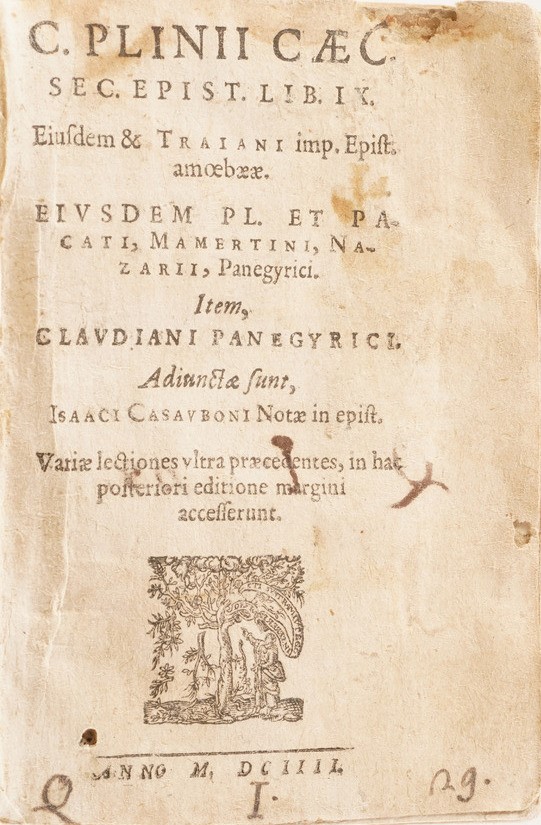 C. PLINII CÆC.
SEC. EPIST. LIB. IX.
Eiuſdem & TRAIANI imp. Epiſt.
amœbææ.
EIVSDEM PL. ET PA-
CATI, MAMERTINI, NA-
ZARII, Panegyrici.
Item,
CLAVDIANI PANEGYRICI.
Adiunctæ ſunt,
ISAACI CASAVBONI Notæ in epiſt.
Variæ lectiones vltra præcedentes, in hac
poſteriori editione margini
acceſſerunt.
ANNO M, DCIIII.
Q I. 29.